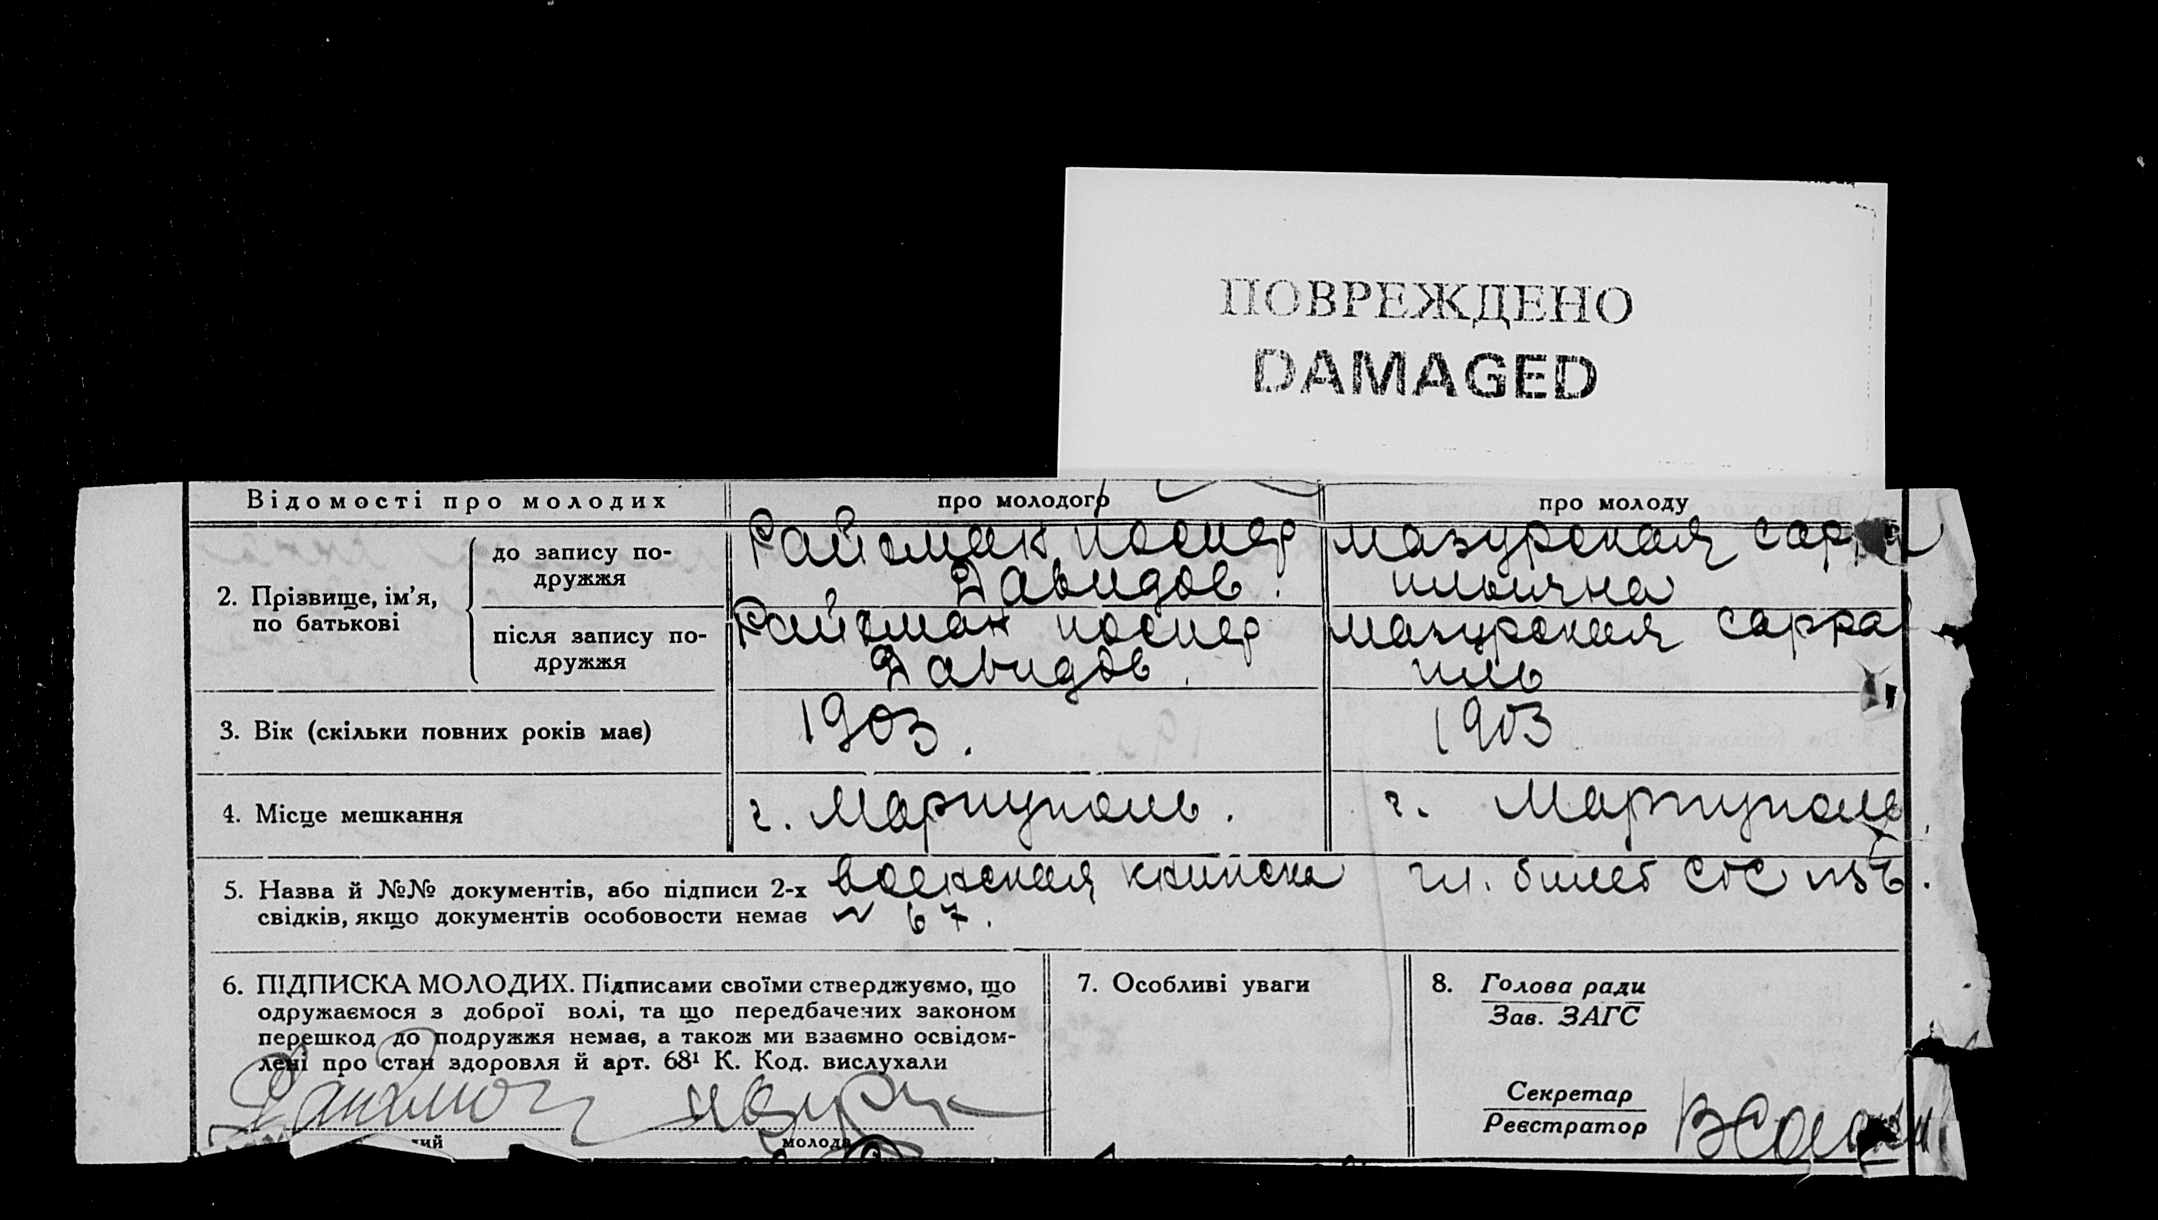 ПОВРЕЖДЕНО
DAMAGED
Відомості про молодих
про молодого
про молоду
2. Прізвище, ім’я,
по батькові
до запису по-
дружжя
Райсман Иосиф
Давидов.
Мазурская Сарра
Ильична
після запису по-
дружжя
Райсман Иосиф
Давидов.
Мазурская Сарра
Иль
3. Вік (скільки повних років має)
1903.
1903
4. Місце мешкання
г. Мариуполь.
г. Мариуполь
5. Назва й №№ документів, або підписи 2-х
свідків, якщо документів особовости немає
воинская книжка
№ 67.
чл. билет
6. ПІДПИСКА МОЛОДИХ. Підписами своїми стверджуємо, що
одружаємося з доброї волі, та що передбачених законом
перешкод до подружжя немає, а також ми взаємно освідом-
лені про стан здоровля й арт. 68¹ К. Код. вислухали
молода
7. Особливі уваги
8. Голова ради
Зав. ЗАГС
Секретар
Реєстратор